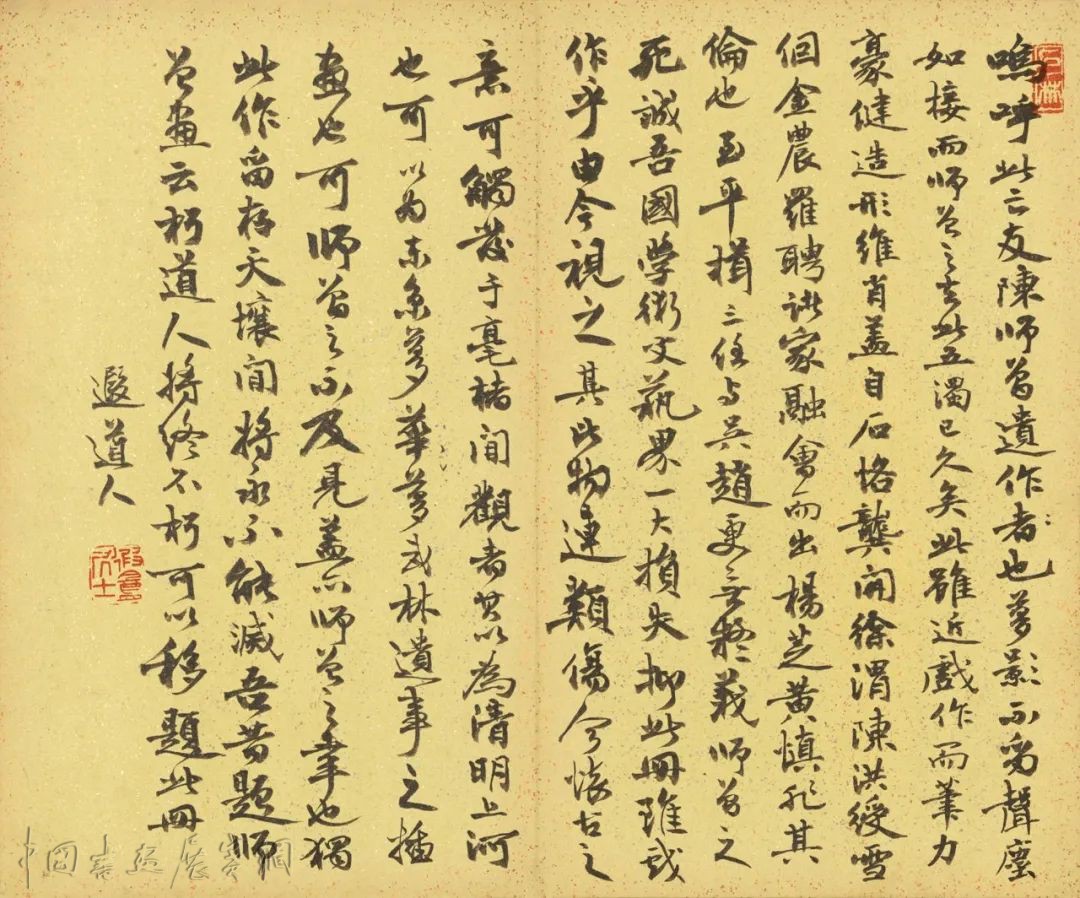 嗚呼此亡友陳師曾遺作者也夢影不留聲塵
如接而師曾之去此五濁已久矣此雖近戲作而筆力
豪健造形維肖蓋自石恪龔開徐渭陳洪綬雪
個金農羅聘諸家融會而出楊芝黃慎非其
倫也至平揖三任与吳趙更無疑義師曾之
死誠吾國學術文藝界一大損失抑此冊雖戲
作乎由今視之其比物連類傷今懷古之
意可觸發于毫楮間觀者其以為清明上河
也可以為東京夢華夢武林遺事之插
畫也可師曾之不及見蓋亦師曾之幸也獨
此作留存天壤間將永不能滅吾昔題師
曾畫云朽道人將終不朽可以移題此冊
遐道人
中國書法展賽網